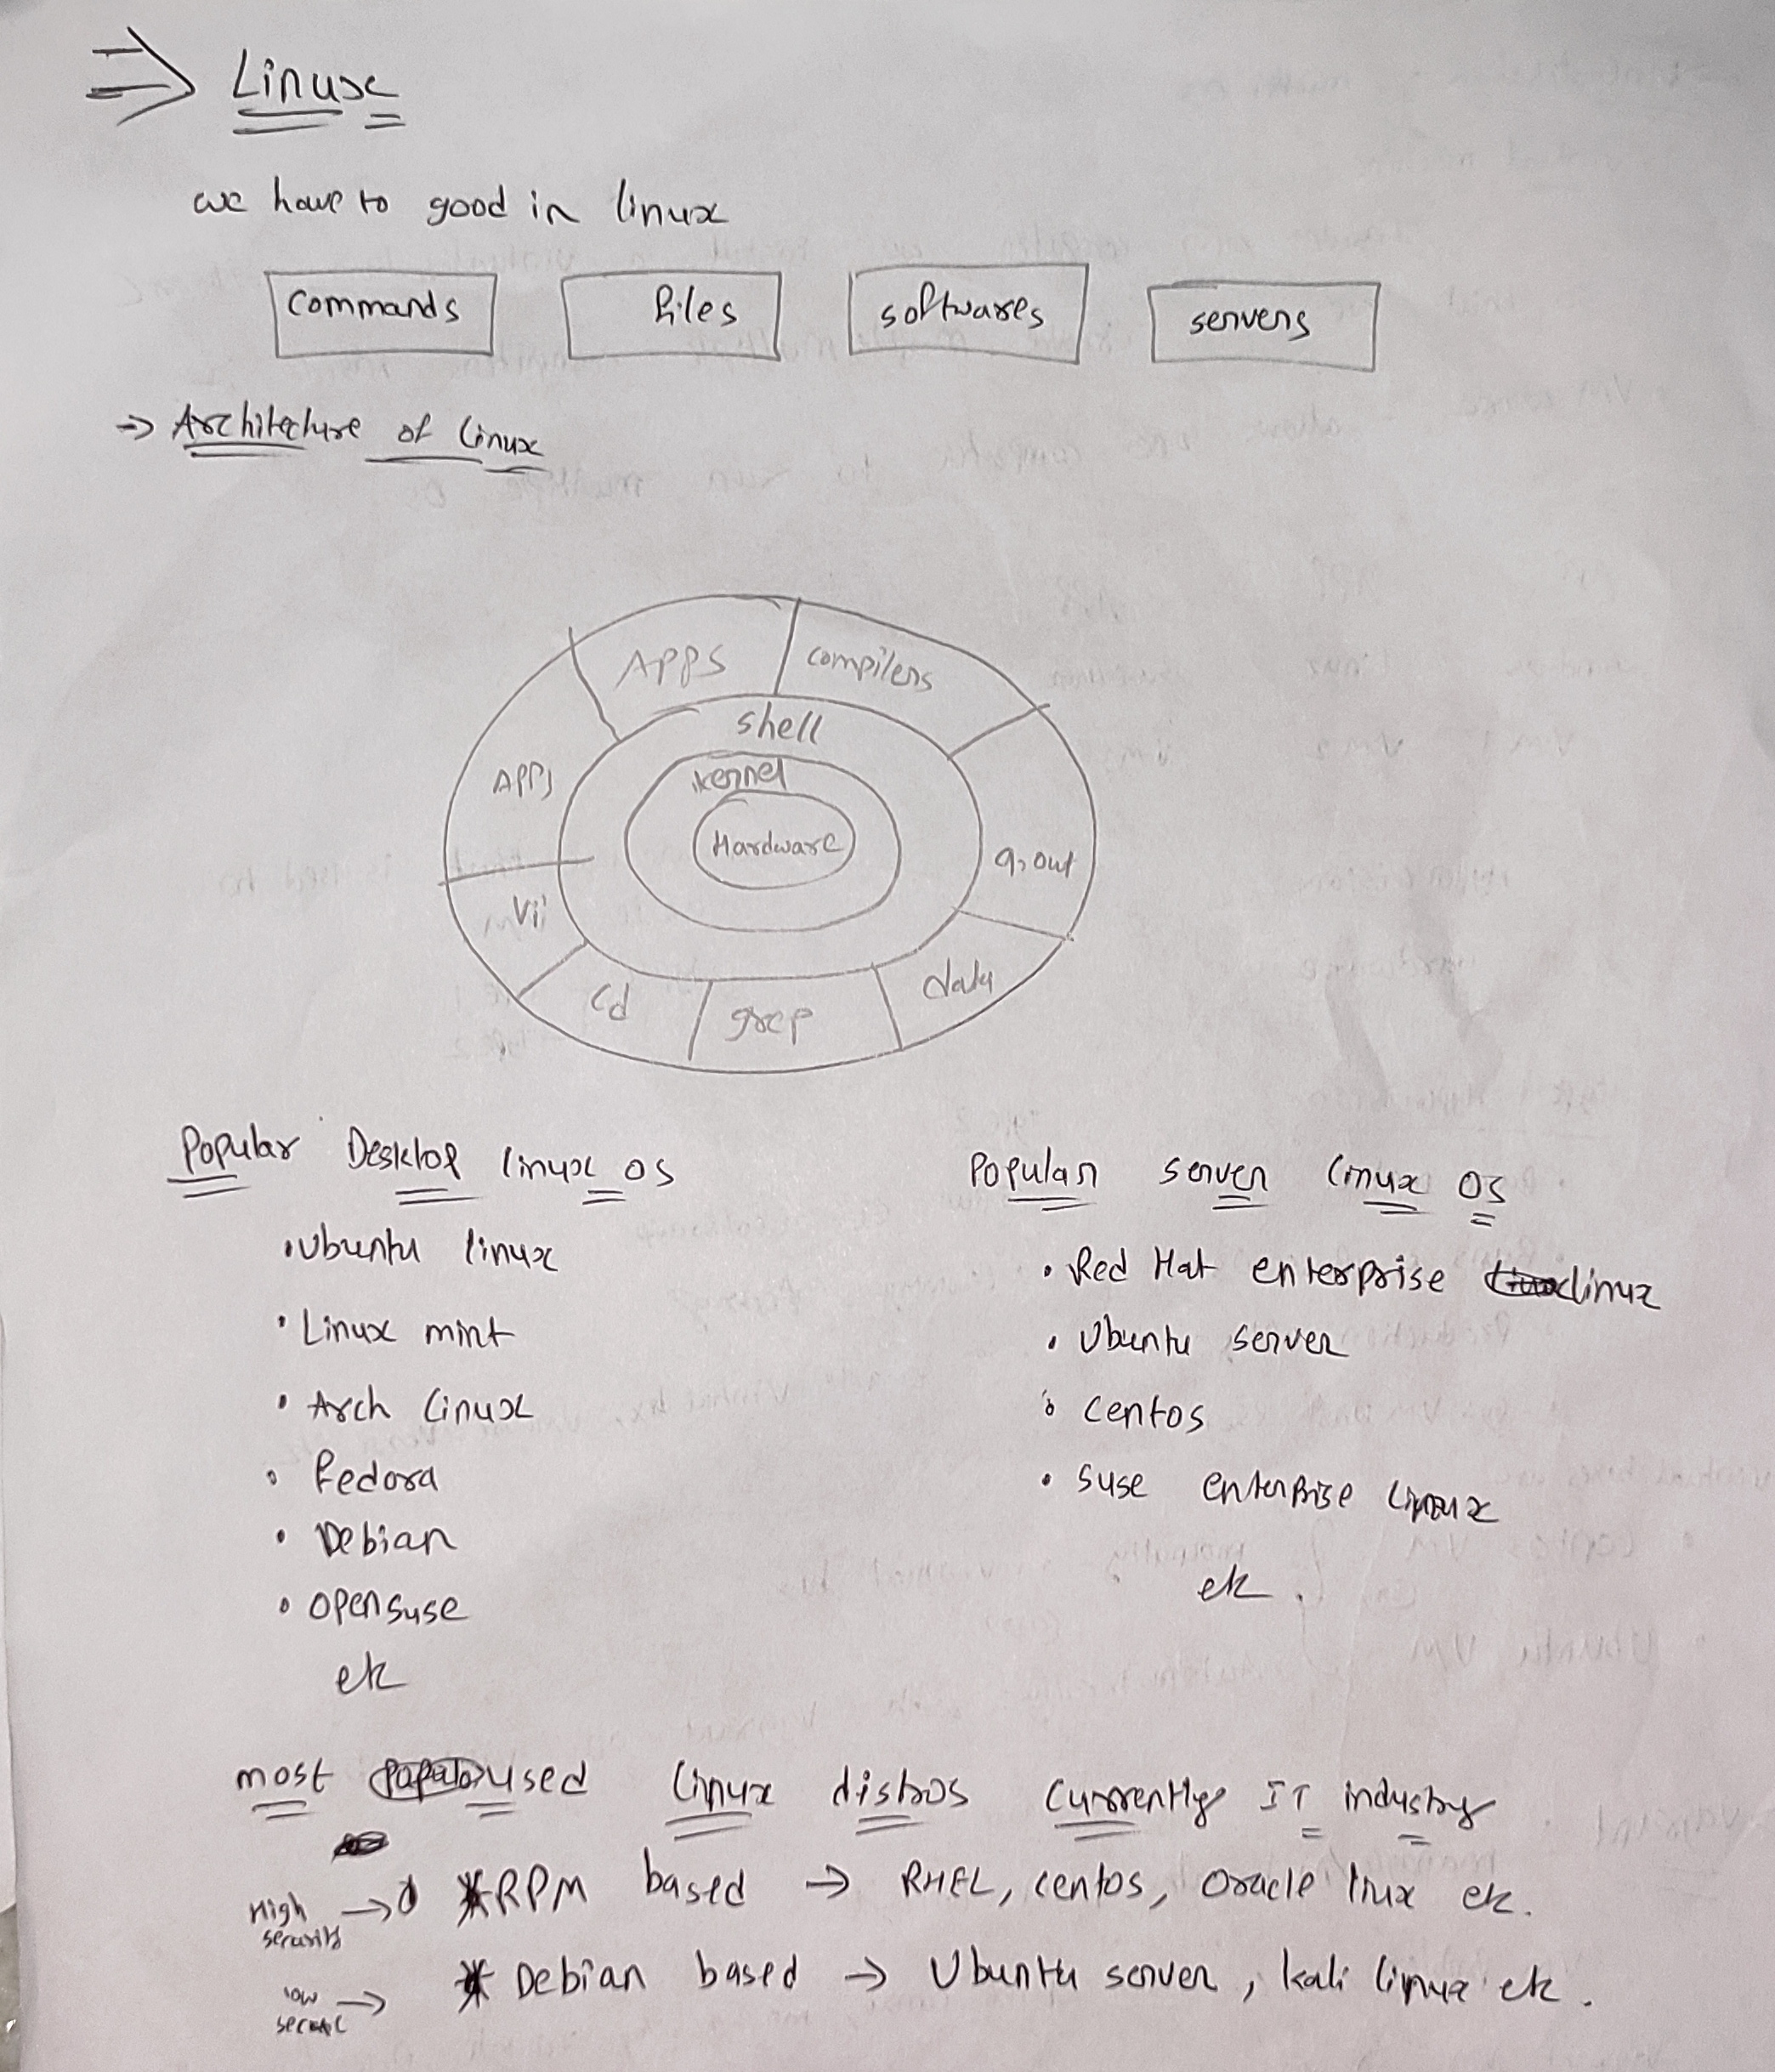 ⇒ Linux
we have to good in linux
commands files softwares servers
→ Architecture of Linux
APPS compilers
shell
kernel
APPS
Hardware
a,out
Vi
cd grep data
Popular Desktop linux os
• Ubuntu linux
• Linux mint
• Arch Linux
• fedora
• Debian
• opensuse
etc
Popular server Linux OS
• Red Hat enterprise linux
• Ubuntu server
• centos
• suse enterprise Linux
etc.
most used Linux distros currently IT industry
High security → * RPM based → RHEL, centos, oracle linux etc.
low → * Debian based → Ubuntu server, kali linux etc.